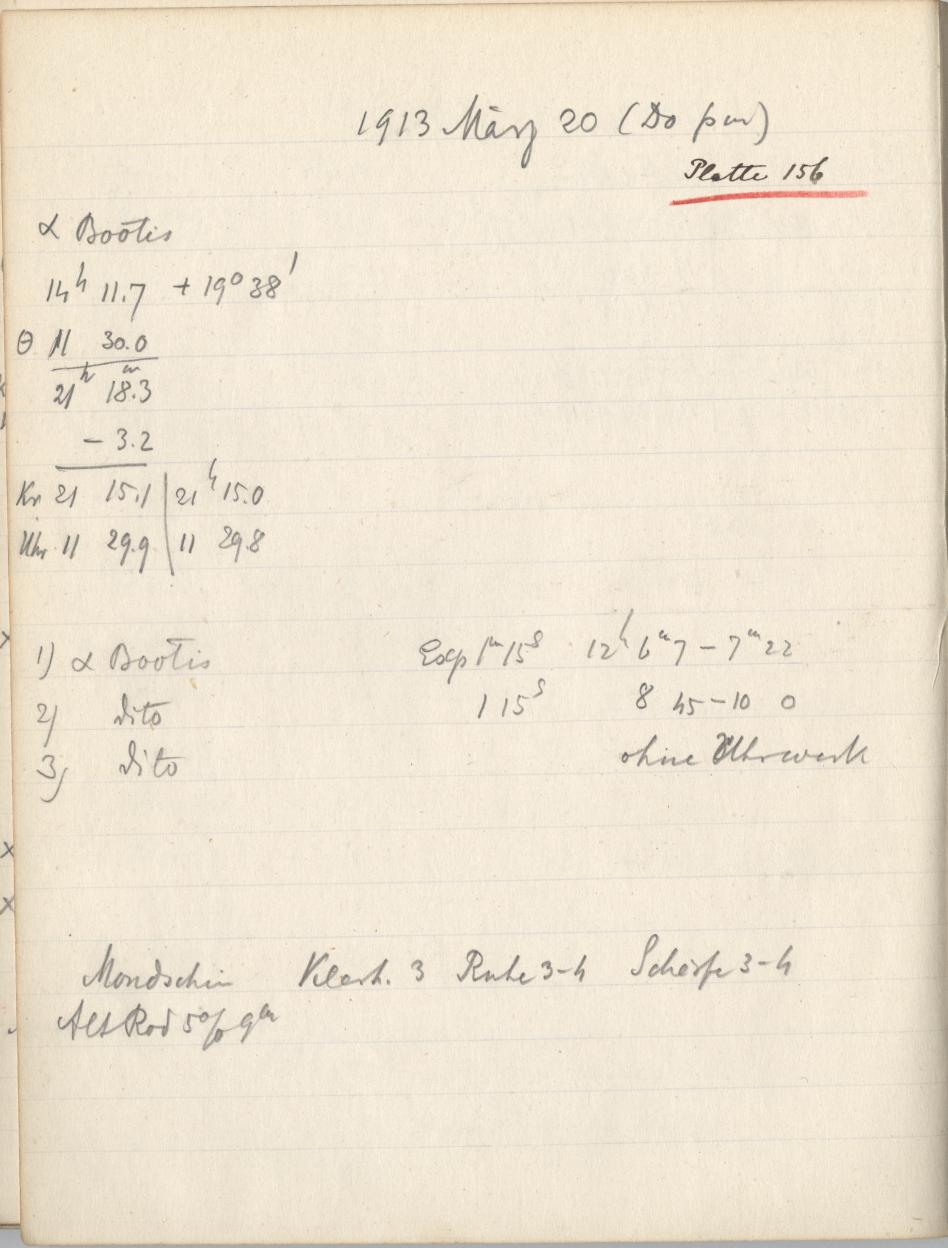 1913 März 20 (Do pm)
Platte 156
α Bootis
14h 11.7 + 19° 38'
Θ 11 30.0
21h 18.3m
- 3.2
Kr 21 15.1 | 21h 15.0
Uhr 11 29.9 | 11 29.8
1) α Bootis Exp 1m 15s 12h 6m 7 - 7m 22
2) dito 1 15s 8 45 - 10 0
3) dito ohne Uhrwerk
Mondschein Klarh. 3 Ruhe 3-4 Schärfe 3-4
Alt Rod 5% 9m